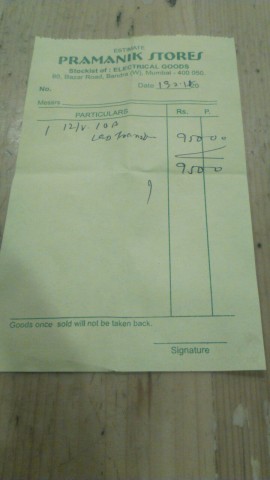 ESTIMATE
PRAMANIK STORES
Stockist of : ELECTRICAL GOODS
Bazar Road, Bandra (W), Mumbai - 400 050.
No. Date
Messrs
PARTICULARS Rs. P.
1 12/v. 950 00
950 0
Goods once sold will not be taken back.
Signature